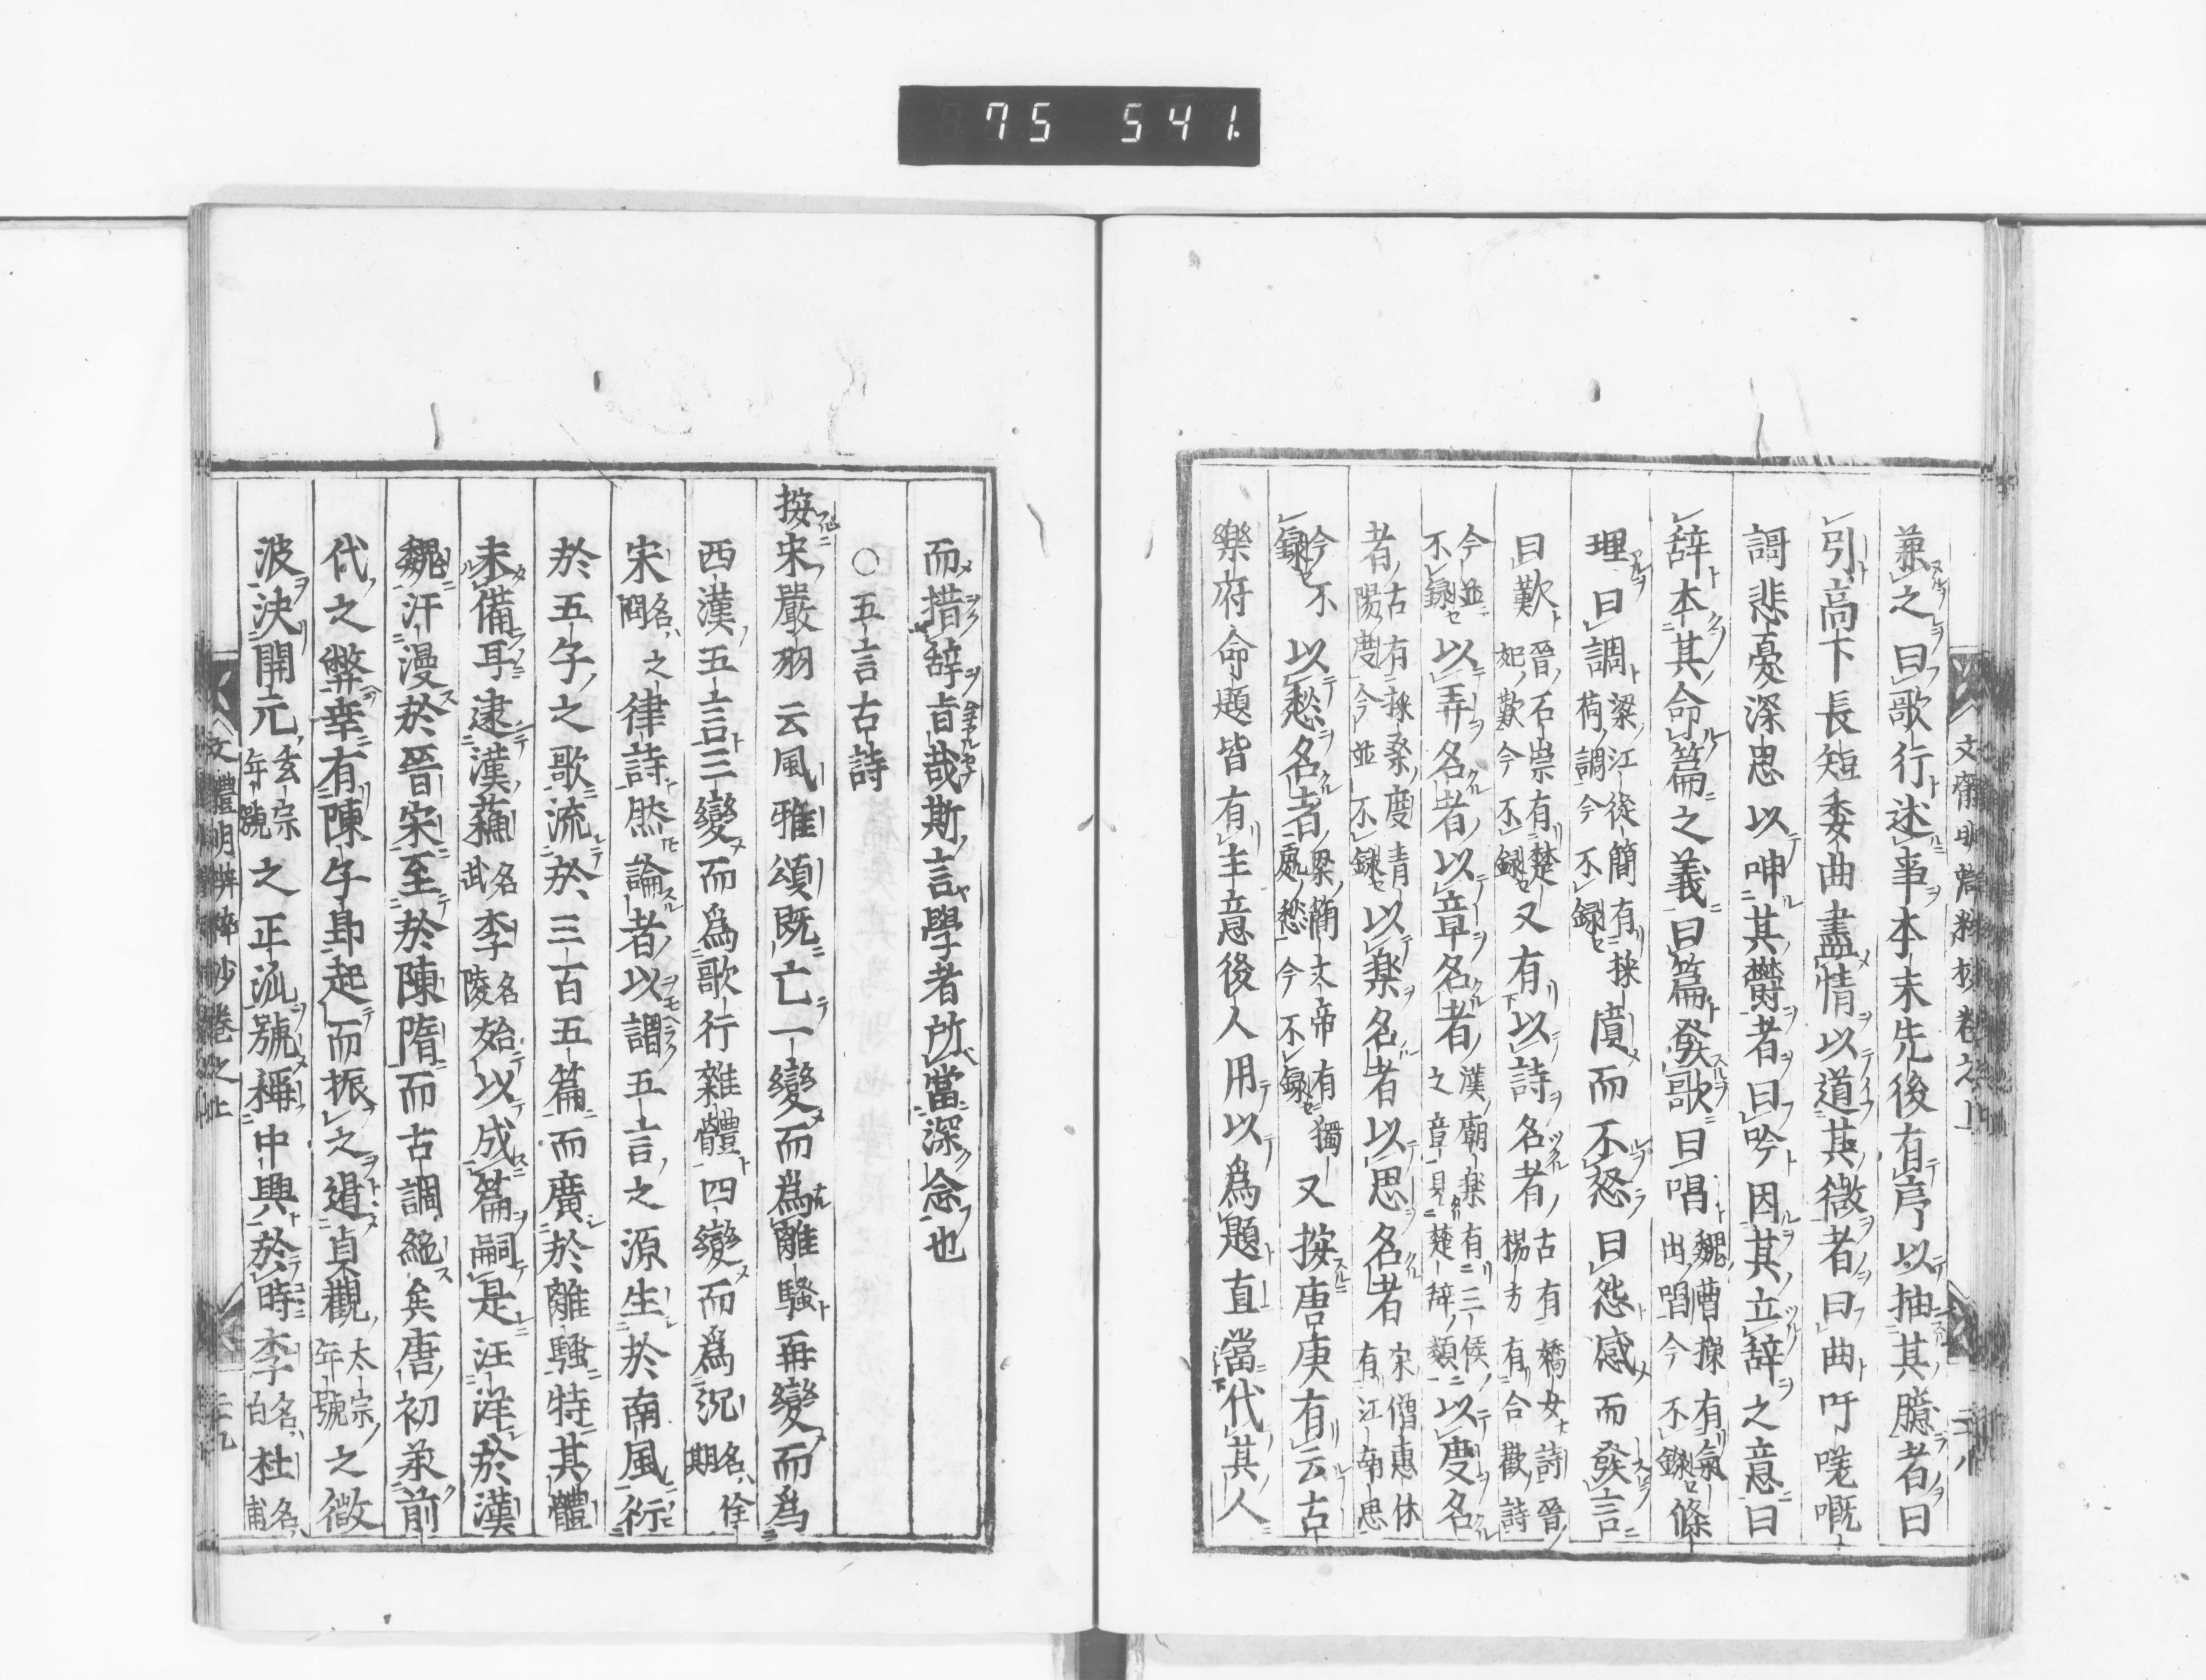 75 541.
兼之曰歌行述事本末先後有序以抽其臆者曰
引高下長短委曲盡情以道其微者曰曲吁嗟嘅
謌悲憂深思以呻其欝者曰吟因其立辞之意曰
辞本其命篇之義曰篇發歌曰唱魏曹操有氣出唱今不録條
理曰調梁江從簡有採荷調今不録憤而不怒曰怨感而發言
曰歎晉石崇有楚妃歎今不録又有以詩名者古有嬌女詩晉楊方有合歡詩
今並不録以弄名者以章名者漢廟楽有三侯之章見楚辞類以度名
者古有採桑度青陽度今並不録以楽名者以思名者宋僧惠休有江南思
今不録以愁名者梁簡文帝有獨處愁今不録又按唐庚有云古
樂府命題皆有主意後人用以為題直當代其人
而措辞旨哉斯言學者所當深念也
○五言古詩
按宋嚴羽云風雅頌既亡一變而為離騷再變而為
西漢五言三變而為歌行雜體四變而為沉名佺期
宋名之問之律詩然論者以謂五言之源生於南風衍
於五子之歌流於三百五篇而廣於離騷特其體
未備耳逮漢蘇名武李名陵始以成篇嗣是汪洋於漢
魏汗漫於晉宋至於陳隋而古調絶矣唐初承前
代之弊幸有陳子昂起而振之遏貞觀太宗年號之微
波決開元玄宗年號之正派號稱中興於時李名白杜名甫
文體明辨粹抄卷之上
二十九